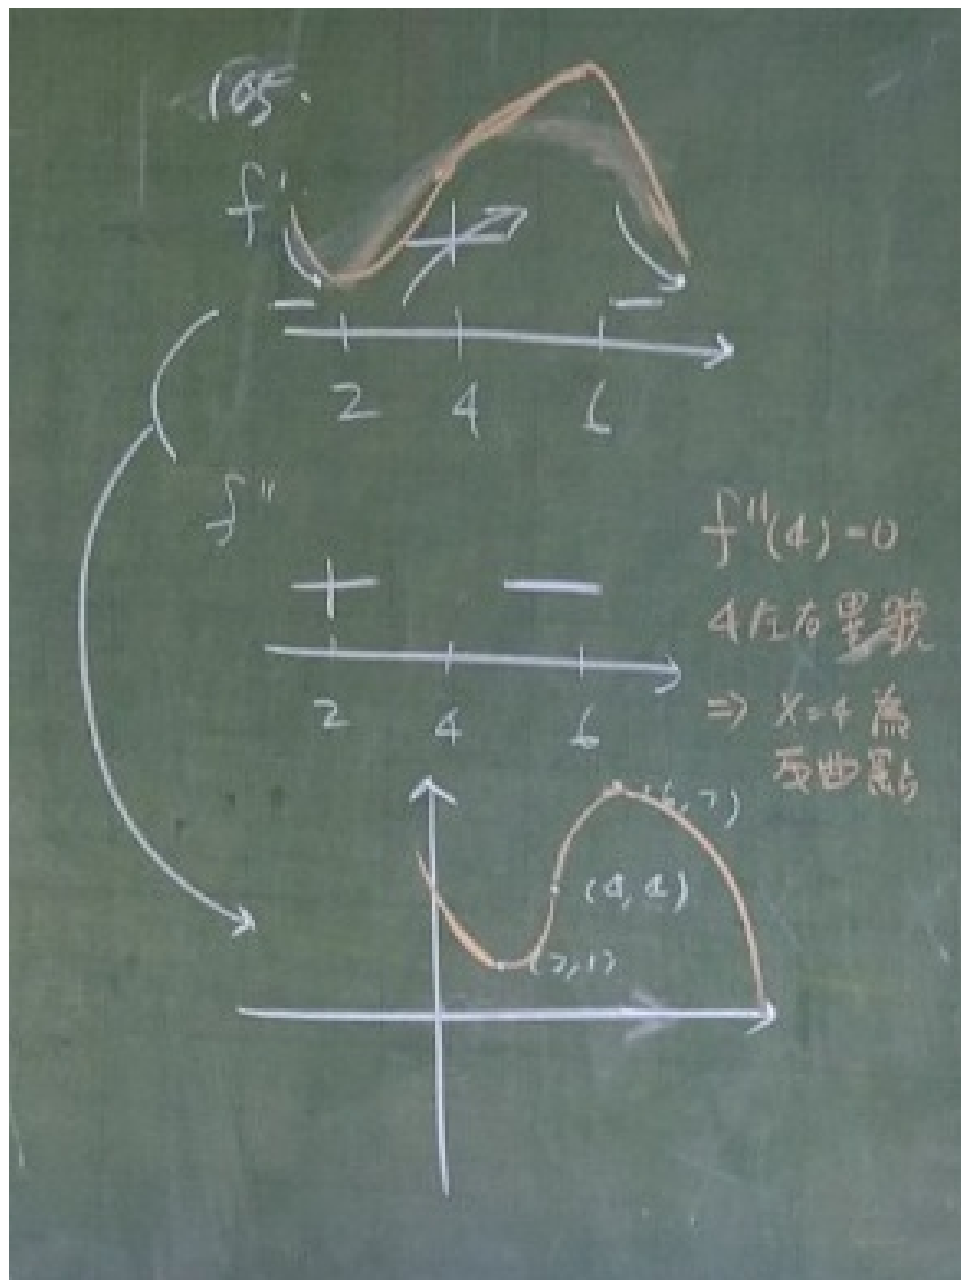 105.
f'
+
- -
2 4 6
f"
+ -
2 4 6
f"(4)=0
4左右異號
⇒ x=4為
反曲點
(6,7)
(4,4)
(2,1)